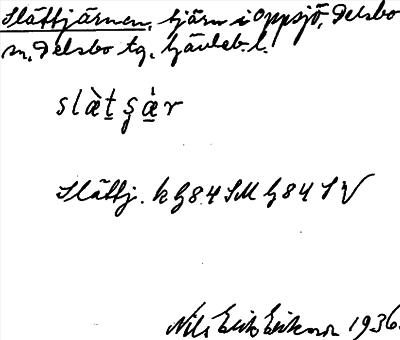 Slättjärnen, tjärn i Oppsjö, Delsbo
sn, Delsbo tg, Gävleb. l.
slæ̀t̲ ʂæ̲̀r
Slättj. k G84 SM G84 SV
Nils Erik Eriksson 1936.